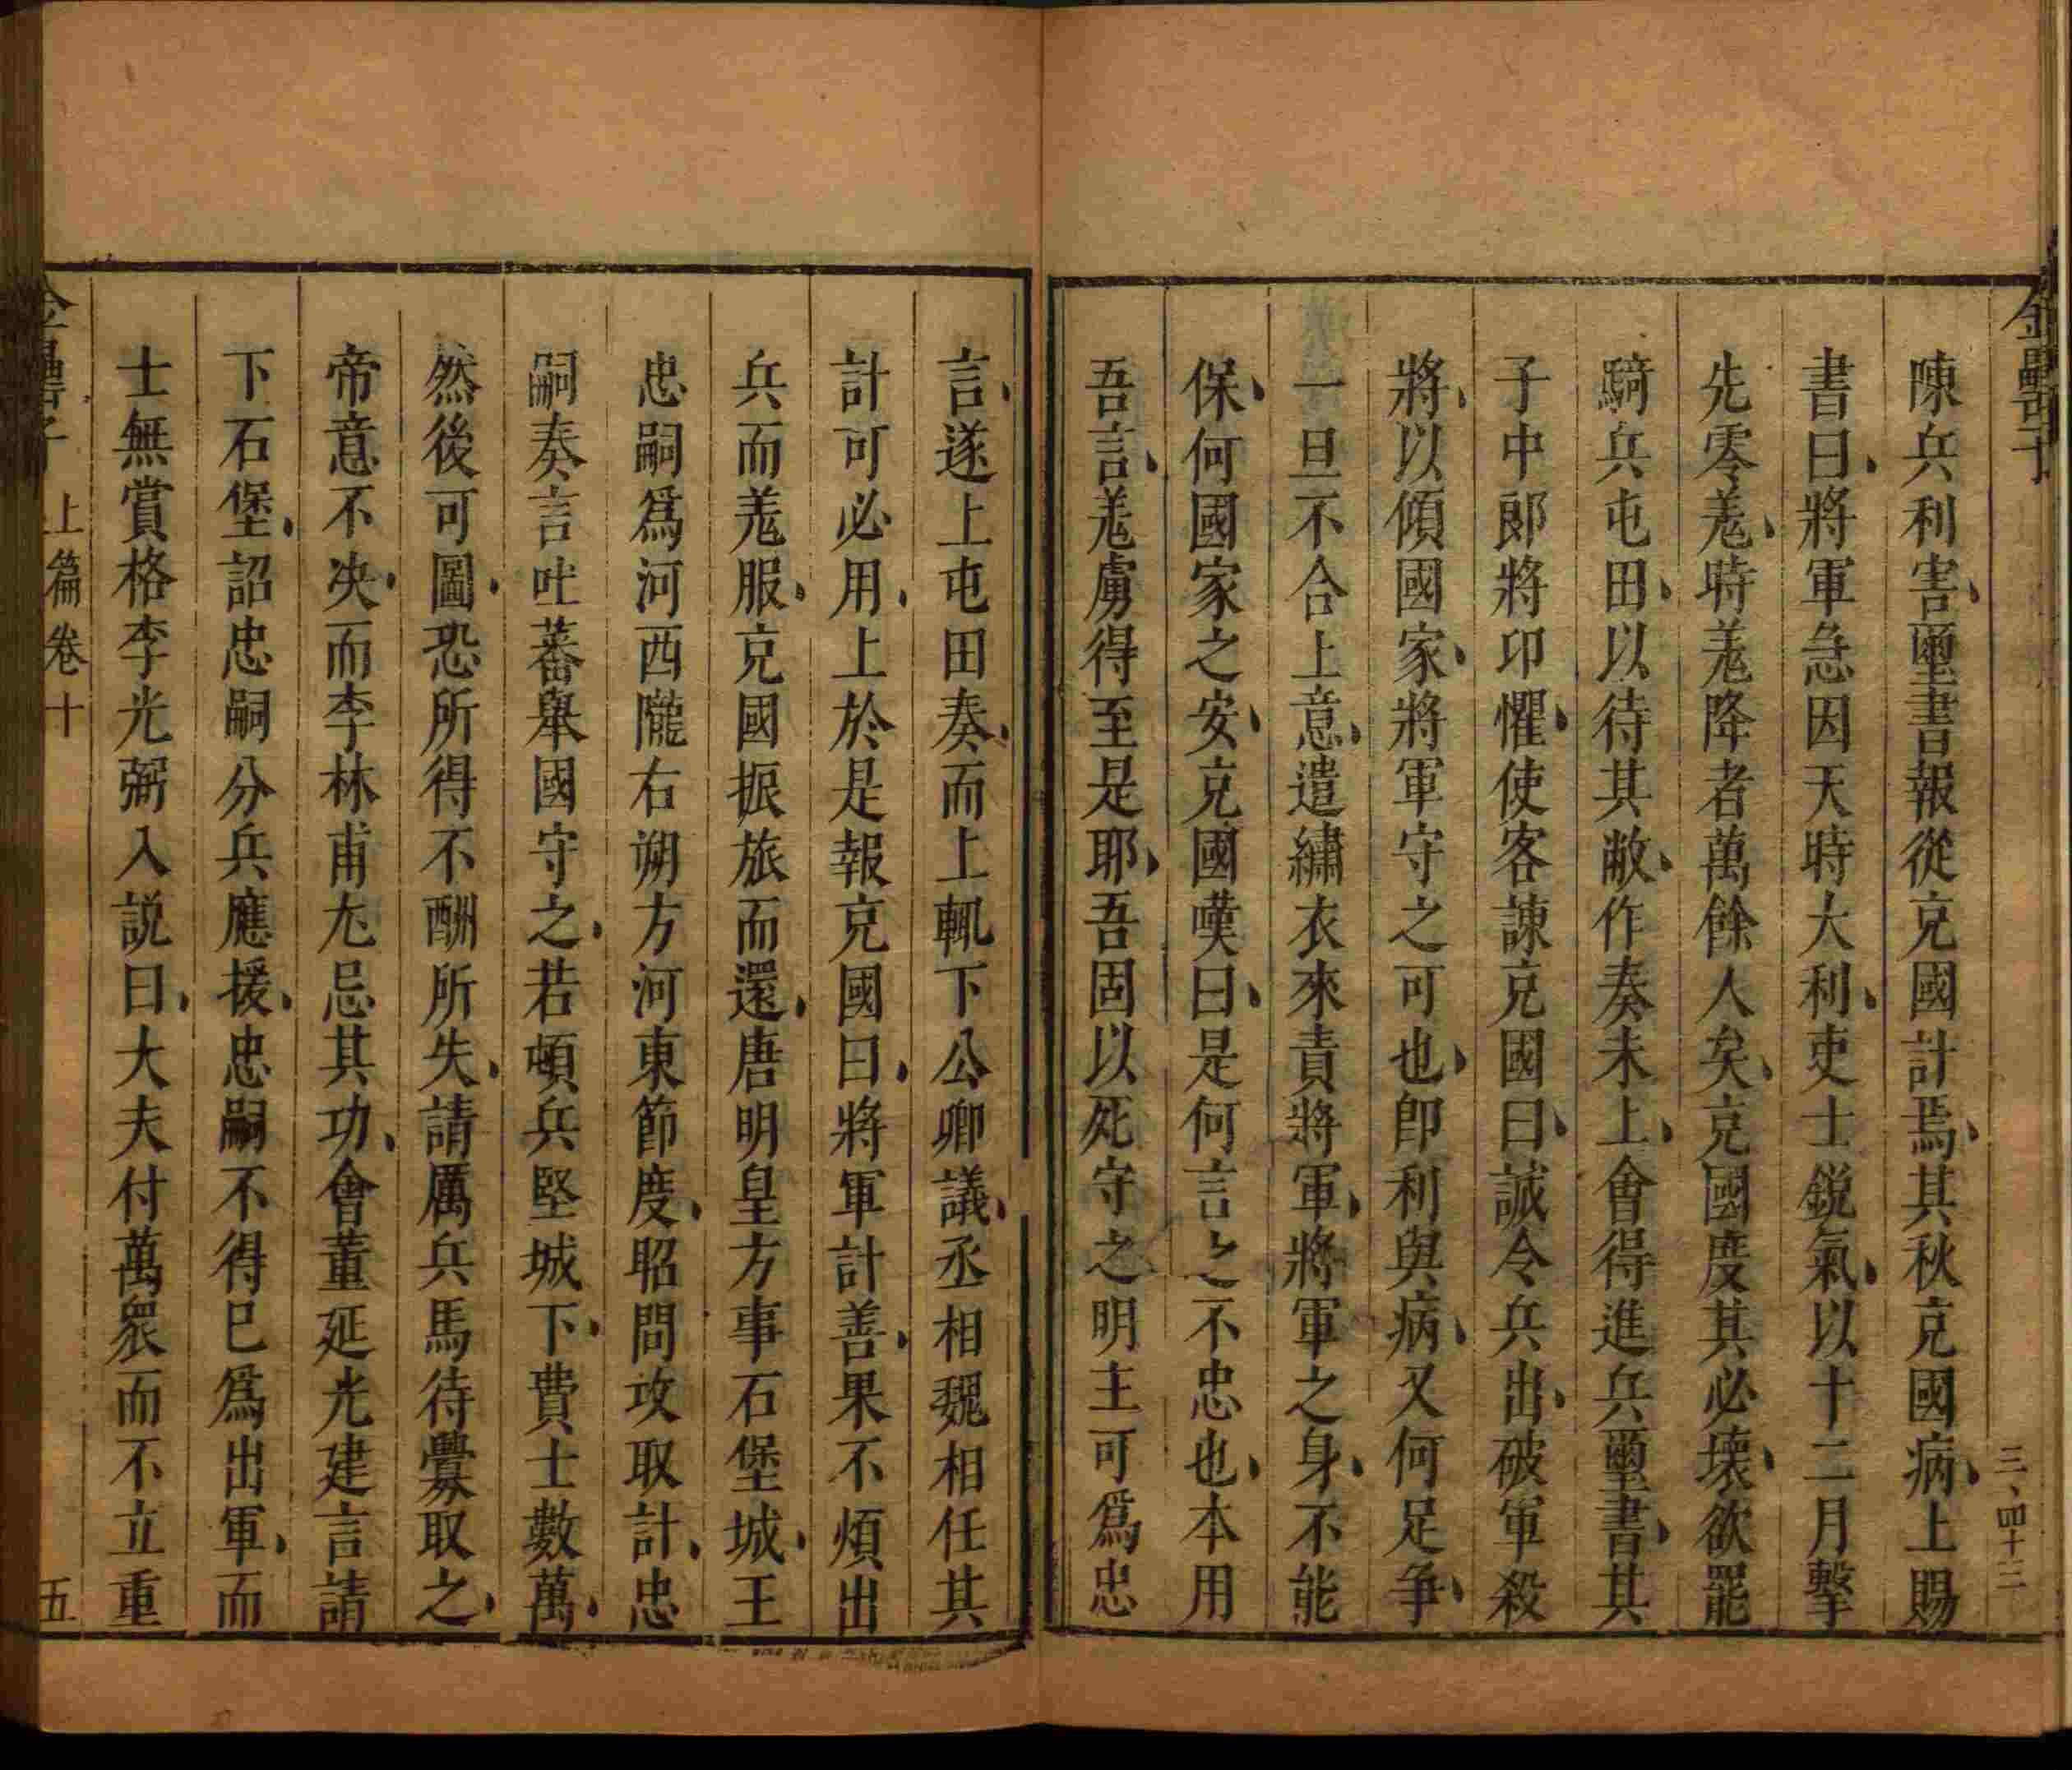 金罍子
三、四十三
陳兵利害、璽書報從充國計焉、其秋充國病、上賜
書曰、將軍急因天時大利、吏士鋭氣、以十二月擊
先零羌、時羌降者萬餘人矣、充國度其必壞、欲罷
騎兵屯田、以待其敝、作奏未上、會得進兵璽書、其
子中郎將卬懼、使客諫充國曰、誠令兵出、破軍殺
將、以傾國家、將軍守之可也、即利與病、又何足爭、
一旦不合上意、遣繡衣來責將軍、將軍之身、不能
保、何國家之安、充國嘆曰、是何言之不忠也、本用
吾言、羌虜得至是耶、吾固以死守之明主可爲忠
言、遂上屯田奏、而上輒下公卿議、丞相魏相任其
計可必用、上於是報充國曰、將軍計善、果不煩出
兵而羌服、充國振旅而還、唐明皇方事石堡城、王
忠嗣爲河西隴右朔方河東節度、昭問攻取計、忠
嗣奏言吐蕃舉國守之、若頓兵堅城下、費士數萬、
然後可圖、恐所得不酬所失、請厲兵馬待釁取之、
帝意不决、而李林甫尢忌其功、會董延光建言請
下石堡、詔忠嗣分兵應援、忠嗣不得巳爲出軍、而
士無賞格李光弼入説曰、大夫付萬衆而不立重
金罍子
上篇卷十
五